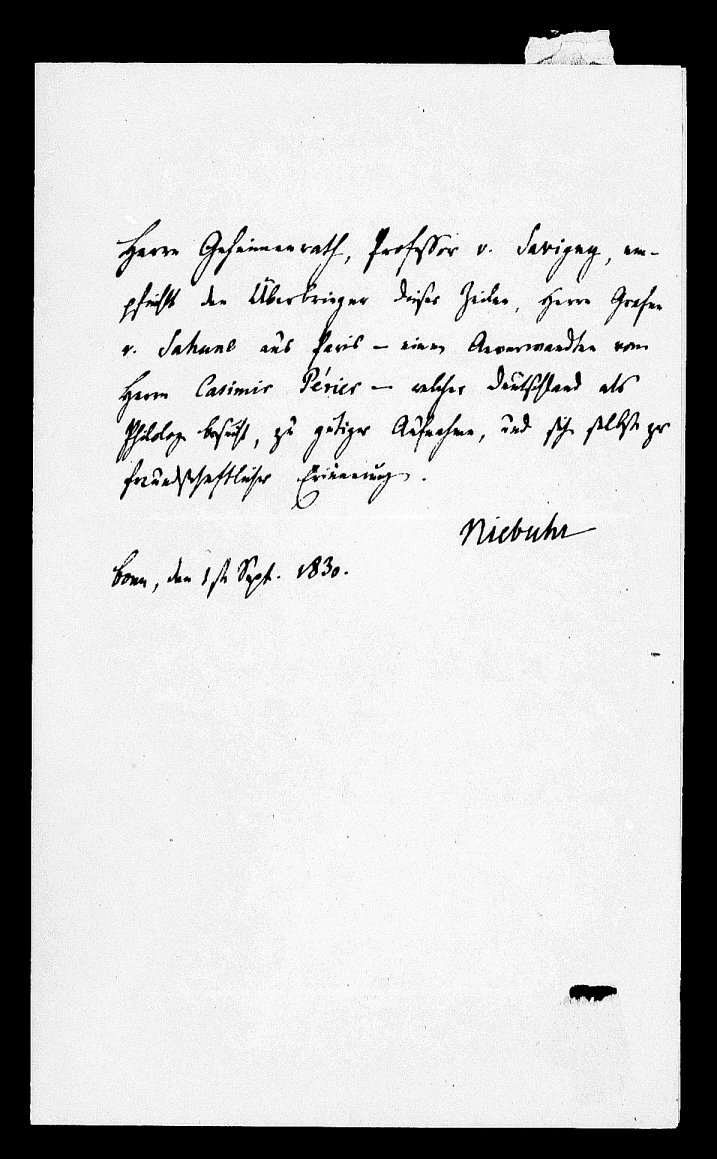 Herrn Geheimenrath, Professor v. Savigny, em-
pfiehlt den Überbringer dieser Zeilen, Herrn Grafen
v. Sahune aus Paris – einen Anverwandten von
Herrn Casimir Périer – welcher Deutschland als
Philolog besucht, zu gütiger Aufnahme, und sich selbst zu
freundschaftlicher Erinnerung.
Niebuhr
Bonn, den 1ste Sept. 1830.